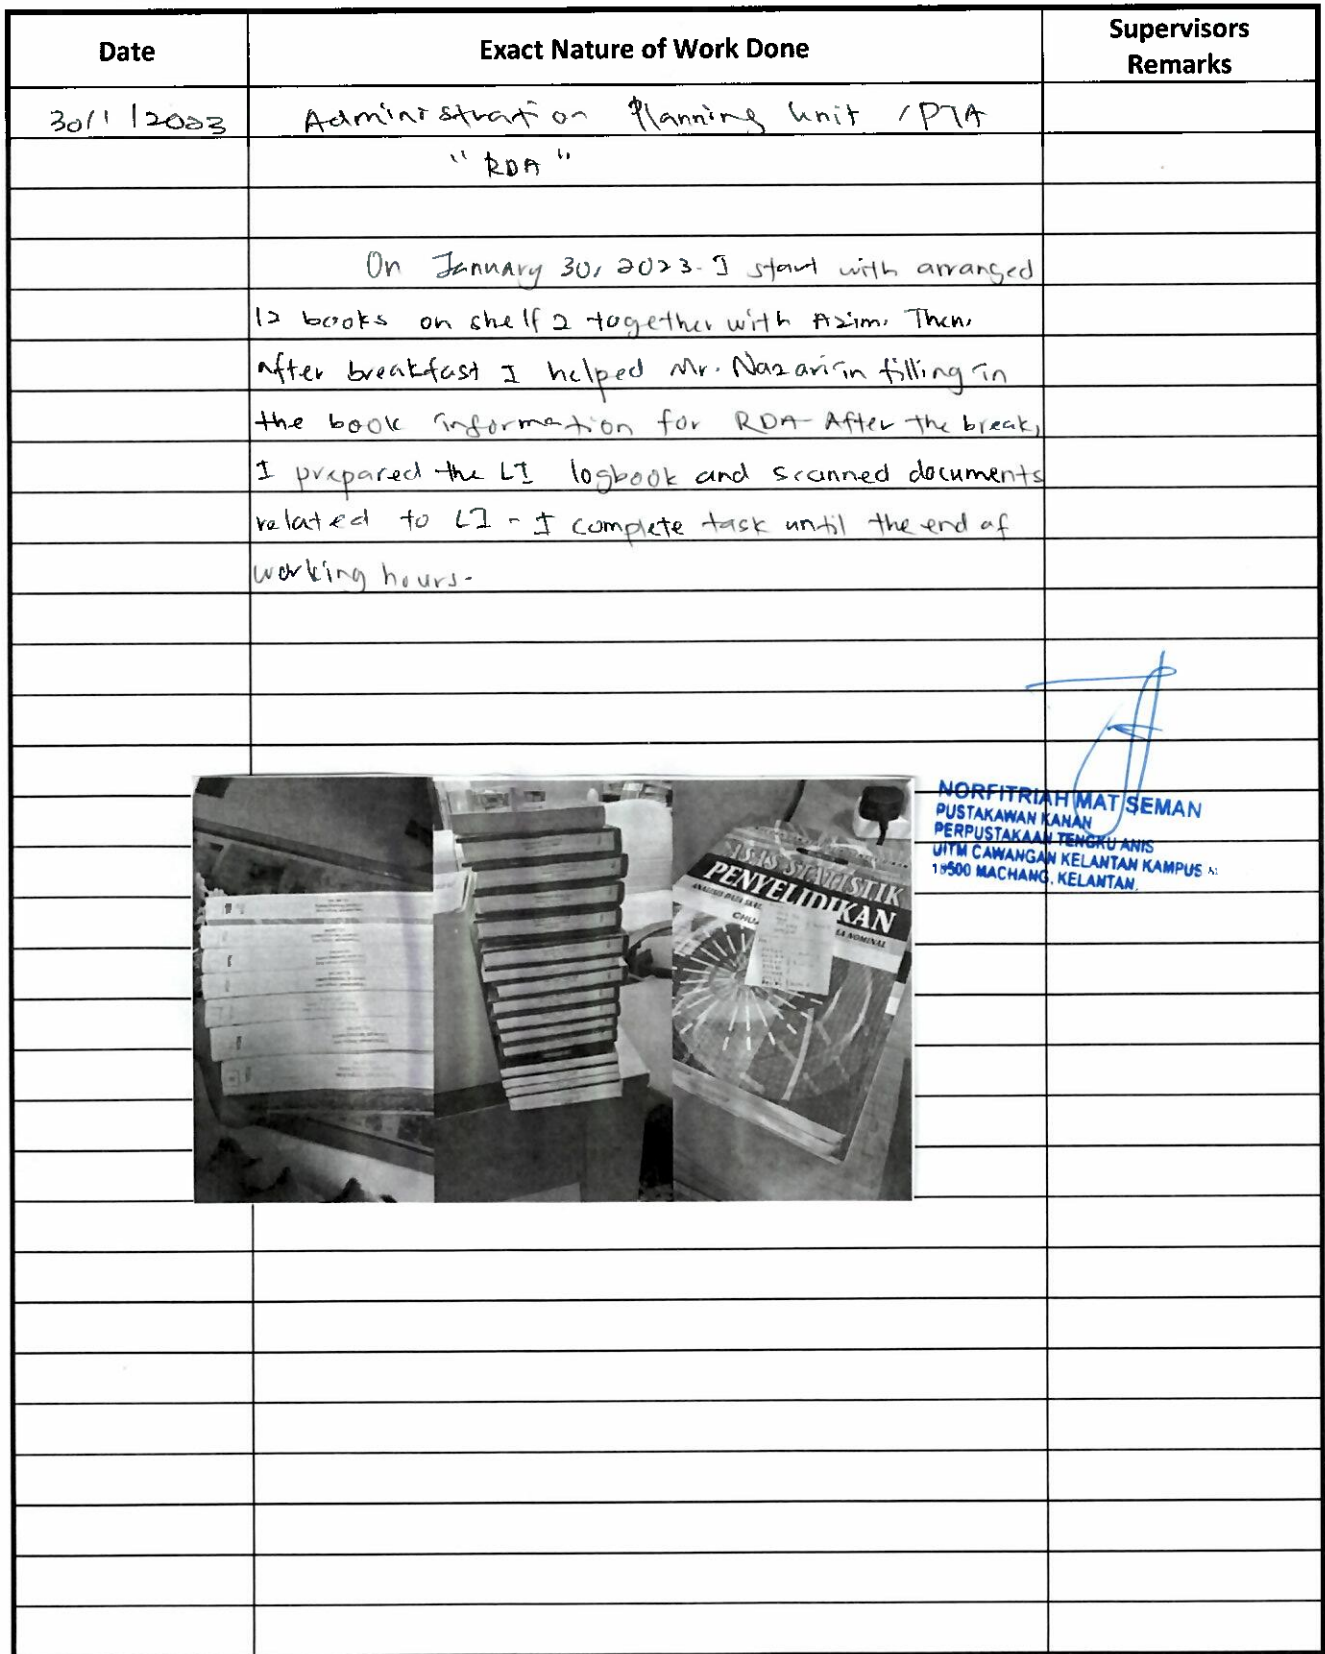 Date
Exact Nature of Work Done
Supervisors
Remarks
30/1/2023
Administration Planning Unit /PTA
"RDA"
On January 30, 2023. I start with arranged
12 books on shelf 2 together with Azim. Then,
after breakfast I helped Mr. Nazari in filling in
the book information for RDA- After the break,
I prepared the LI logbook and scanned documents
related to LI - I complete task until the end of
working hours-
NORFITRIAH MAT SEMAN
PUSTAKAWAN KANAN
PERPUSTAKAAN TENGKU ANIS
UITM CAWANGAN KELANTAN KAMPUS
18500 MACHANG, KELANTAN.
STATISTIK
PENYELIDIKAN
NOMINAL